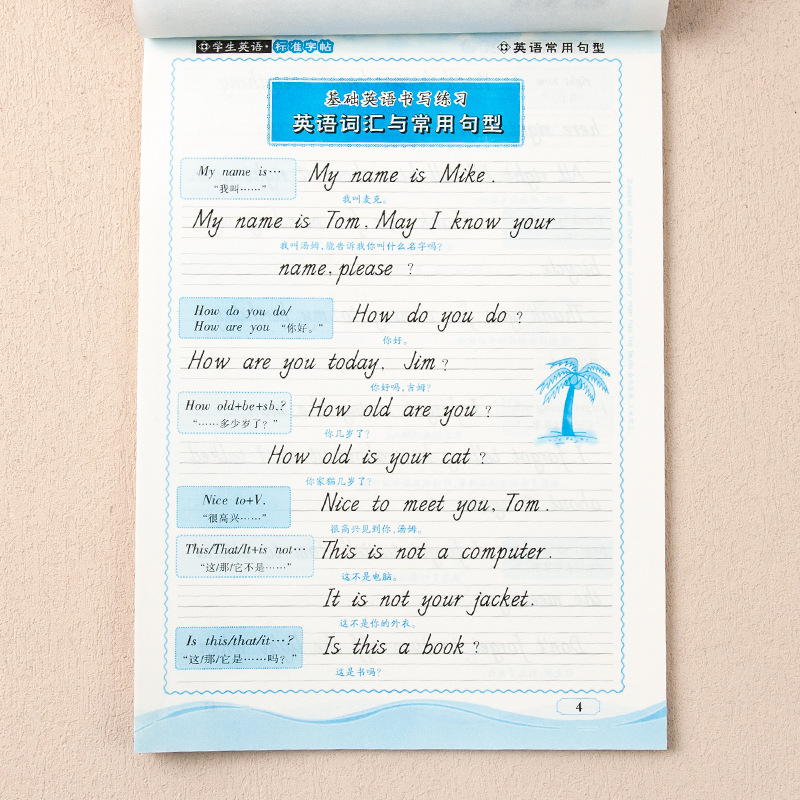 学生英语·标准字帖
英语常用句型
基础英语书写练习
英语词汇与常用句型
My name is…
“我叫……”
My name is Mike.
我叫麦克。
My name is Tom, May I know your
我叫汤姆,能告诉我你叫什么名字吗?
name, please ?
How do you do/
How are you “你好。”
How do you do ?
你好。
How are you today, Jim ?
你好吗,吉姆?
How old+be+sb.?
“……多少岁了?”
How old are you ?
你几岁了?
How old is your cat ?
你家猫几岁了?
Nice to+V.
“很高兴……”
Nice to meet you, Tom.
很高兴见到你,汤姆。
This/That/It+is not…
“这/那/它不是……”
This is not a computer.
这不是电脑。
It is not your jacket.
这不是你的外衣。
Is this/that/it…?
“这/那/它是……吗?”
Is this a book ?
这是书吗?
4